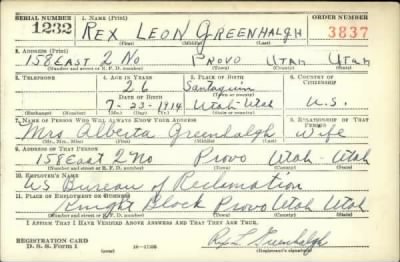 SERIAL NUMBER 1. NAME (Print) ORDER NUMBER
1232 REX LEON GREENHALGH 3837
(First) (Middle) (Last)
2. ADDRESS (Print)
158 EAST 2 NO PROVO UTAH UTAH
(Number and street or R. F. D. number) (Town) (County) (State)
3. TELEPHONE 4. AGE IN YEARS 5. PLACE OF BIRTH 6. COUNTRY OF CITIZENSHIP
26 Santaquin
DATE OF BIRTH (Town or county)
7-23-1914 Utah-Utah U.S.
(Exchange) (No.) (Mo.) (Day) (Yr.) (State or country)
7. NAME OF PERSON WHO WILL ALWAYS KNOW YOUR ADDRESS 8. RELATIONSHIP OF THAT PERSON
Mrs Alberta Greenhalgh Wife
(Mr., Mrs., Miss) (First) (Middle) (Last)
9. ADDRESS OF THAT PERSON
158 East 2 No Provo Utah-Utah
(Number and street or R. F. D. number) (Town) (County) (State)
10. EMPLOYER'S NAME
US Bureau of Reclamation
11. PLACE OF EMPLOYMENT OR BUSINESS
Knight Block Provo Utah Utah
(Number and street or R. F. D. number) (Town) (County) (State)
I AFFIRM THAT I HAVE VERIFIED ABOVE ANSWERS AND THAT THEY ARE TRUE.
REGISTRATION CARD
D. S. S. Form 1 Rex L Greenhalgh
(Registrant's signature)